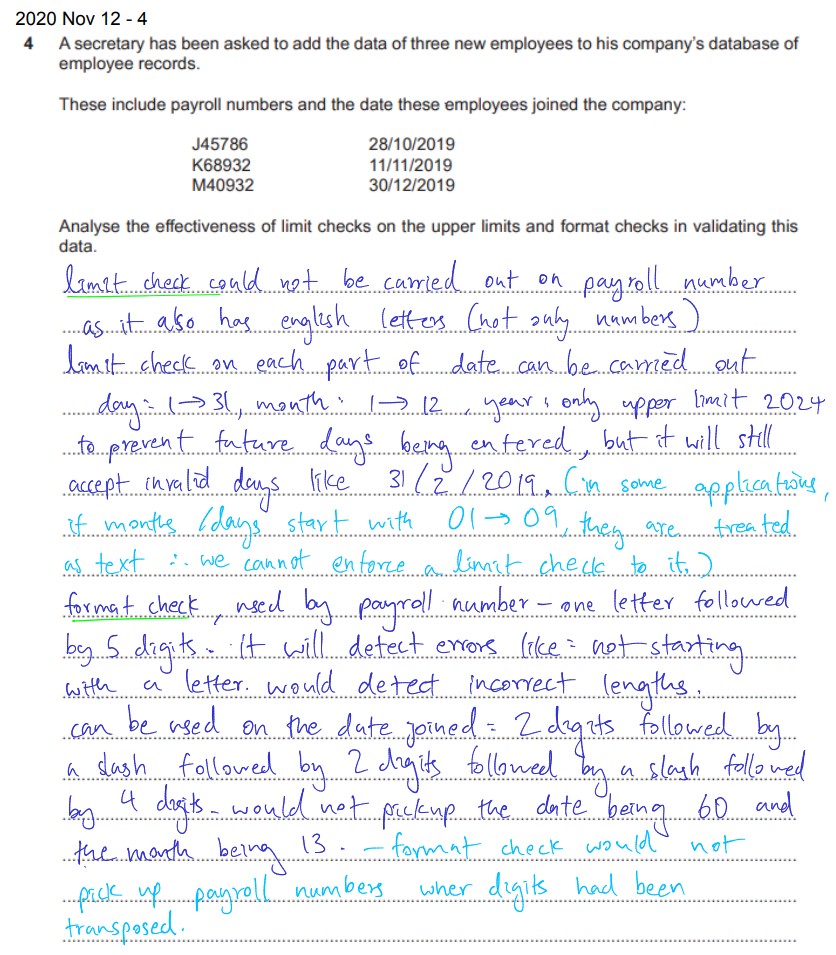 2020 Nov 12 - 4
4 A secretary has been asked to add the data of three new employees to his company's database of
employee records.
These include payroll numbers and the date these employees joined the company:
J45786 28/10/2019
K68932 11/11/2019
M40932 30/12/2019
Analyse the effectiveness of limit checks on the upper limits and format checks in validating this
data.
limit check could not be carried out on payroll number
as it also has english letters (not only numbers)
limit check on each part of date can be carried out
day: 1→31, month: 1→12, year: only upper limit 2024
to prevent future days being entered, but it will still
accept invalid days like 31/2/2019. (in some applications,
if months/days start with 01→09, they are treated
as text ∴ we cannot enforce a limit check to it.)
format check, used by payroll number - one letter followed
by 5 digits. it will detect errors like: not starting
with a letter. would detect incorrect lengths.
can be used on the date joined: 2 digits followed by
a slash followed by 2 digits followed by a slash followed
by 4 digits - would not pickup the date being 60 and
the month being 13. - format check would not
pick up payroll numbers wher digits had been
transposed.